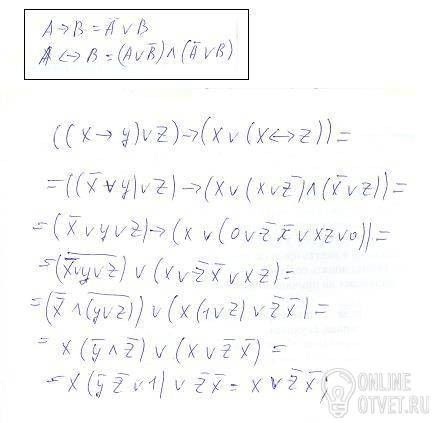 A → B = A̅ ∨ B
A ↔ B = (A ∨ B̅) ∧ (A̅ ∨ B)
((x → y) ∨ z) → (x ∨ (x ↔ z)) =
= ((x̅ ∨ y) ∨ z) → (x ∨ (x ∨ z̅) ∧ (x̅ ∨ z)) =
= (x̅ ∨ y ∨ z) → (x ∨ (0 ∨ z̅ x̅ ∨ xz ∨ 0)) =
= (x̅ ∨ y ∨ z)̅ ∨ (x ∨ z̅ x̅ ∨ xz) =
= (x̿ ∧ (y ∨ z)̅) ∨ (x (1 ∨ z) ∨ z̅ x̅) =
= x (y̅ ∧ z̅) ∨ (x ∨ z̅ x̅) =
= x (y̅ z̅ ∨ 1) ∨ z̅ x̅ = x ∨ z̅ x̅
ONLINE
OTVET.RU